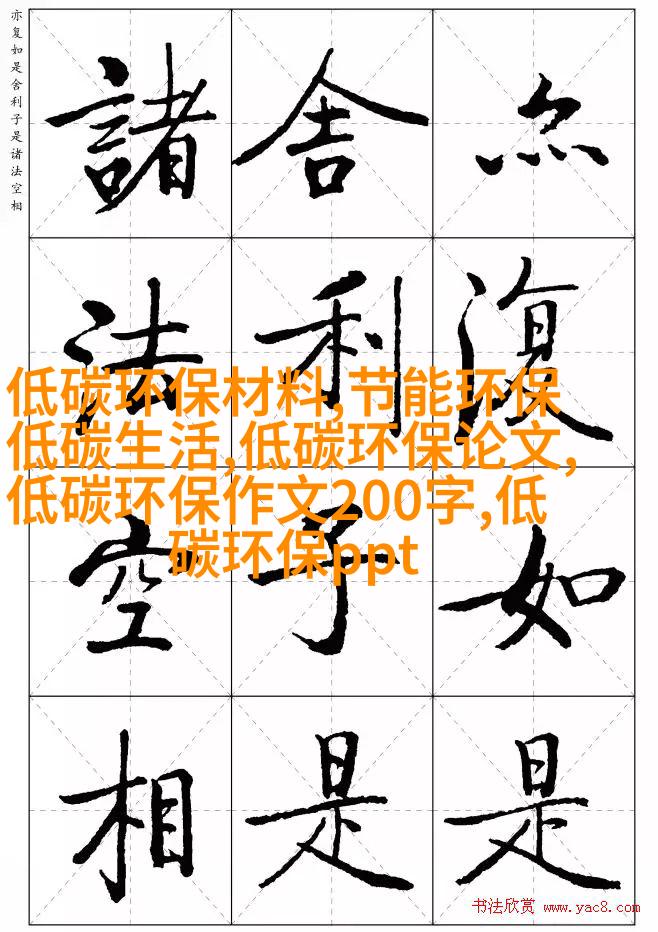 亦复如是舍利子是诸法空相
亦復如是
舍利子是
諸法空相
低碳环保材料,节能环保
低碳生活,低碳环保论文,
低碳环保作文200字,低
碳环保ppt
书法欣赏 www.yac8.com